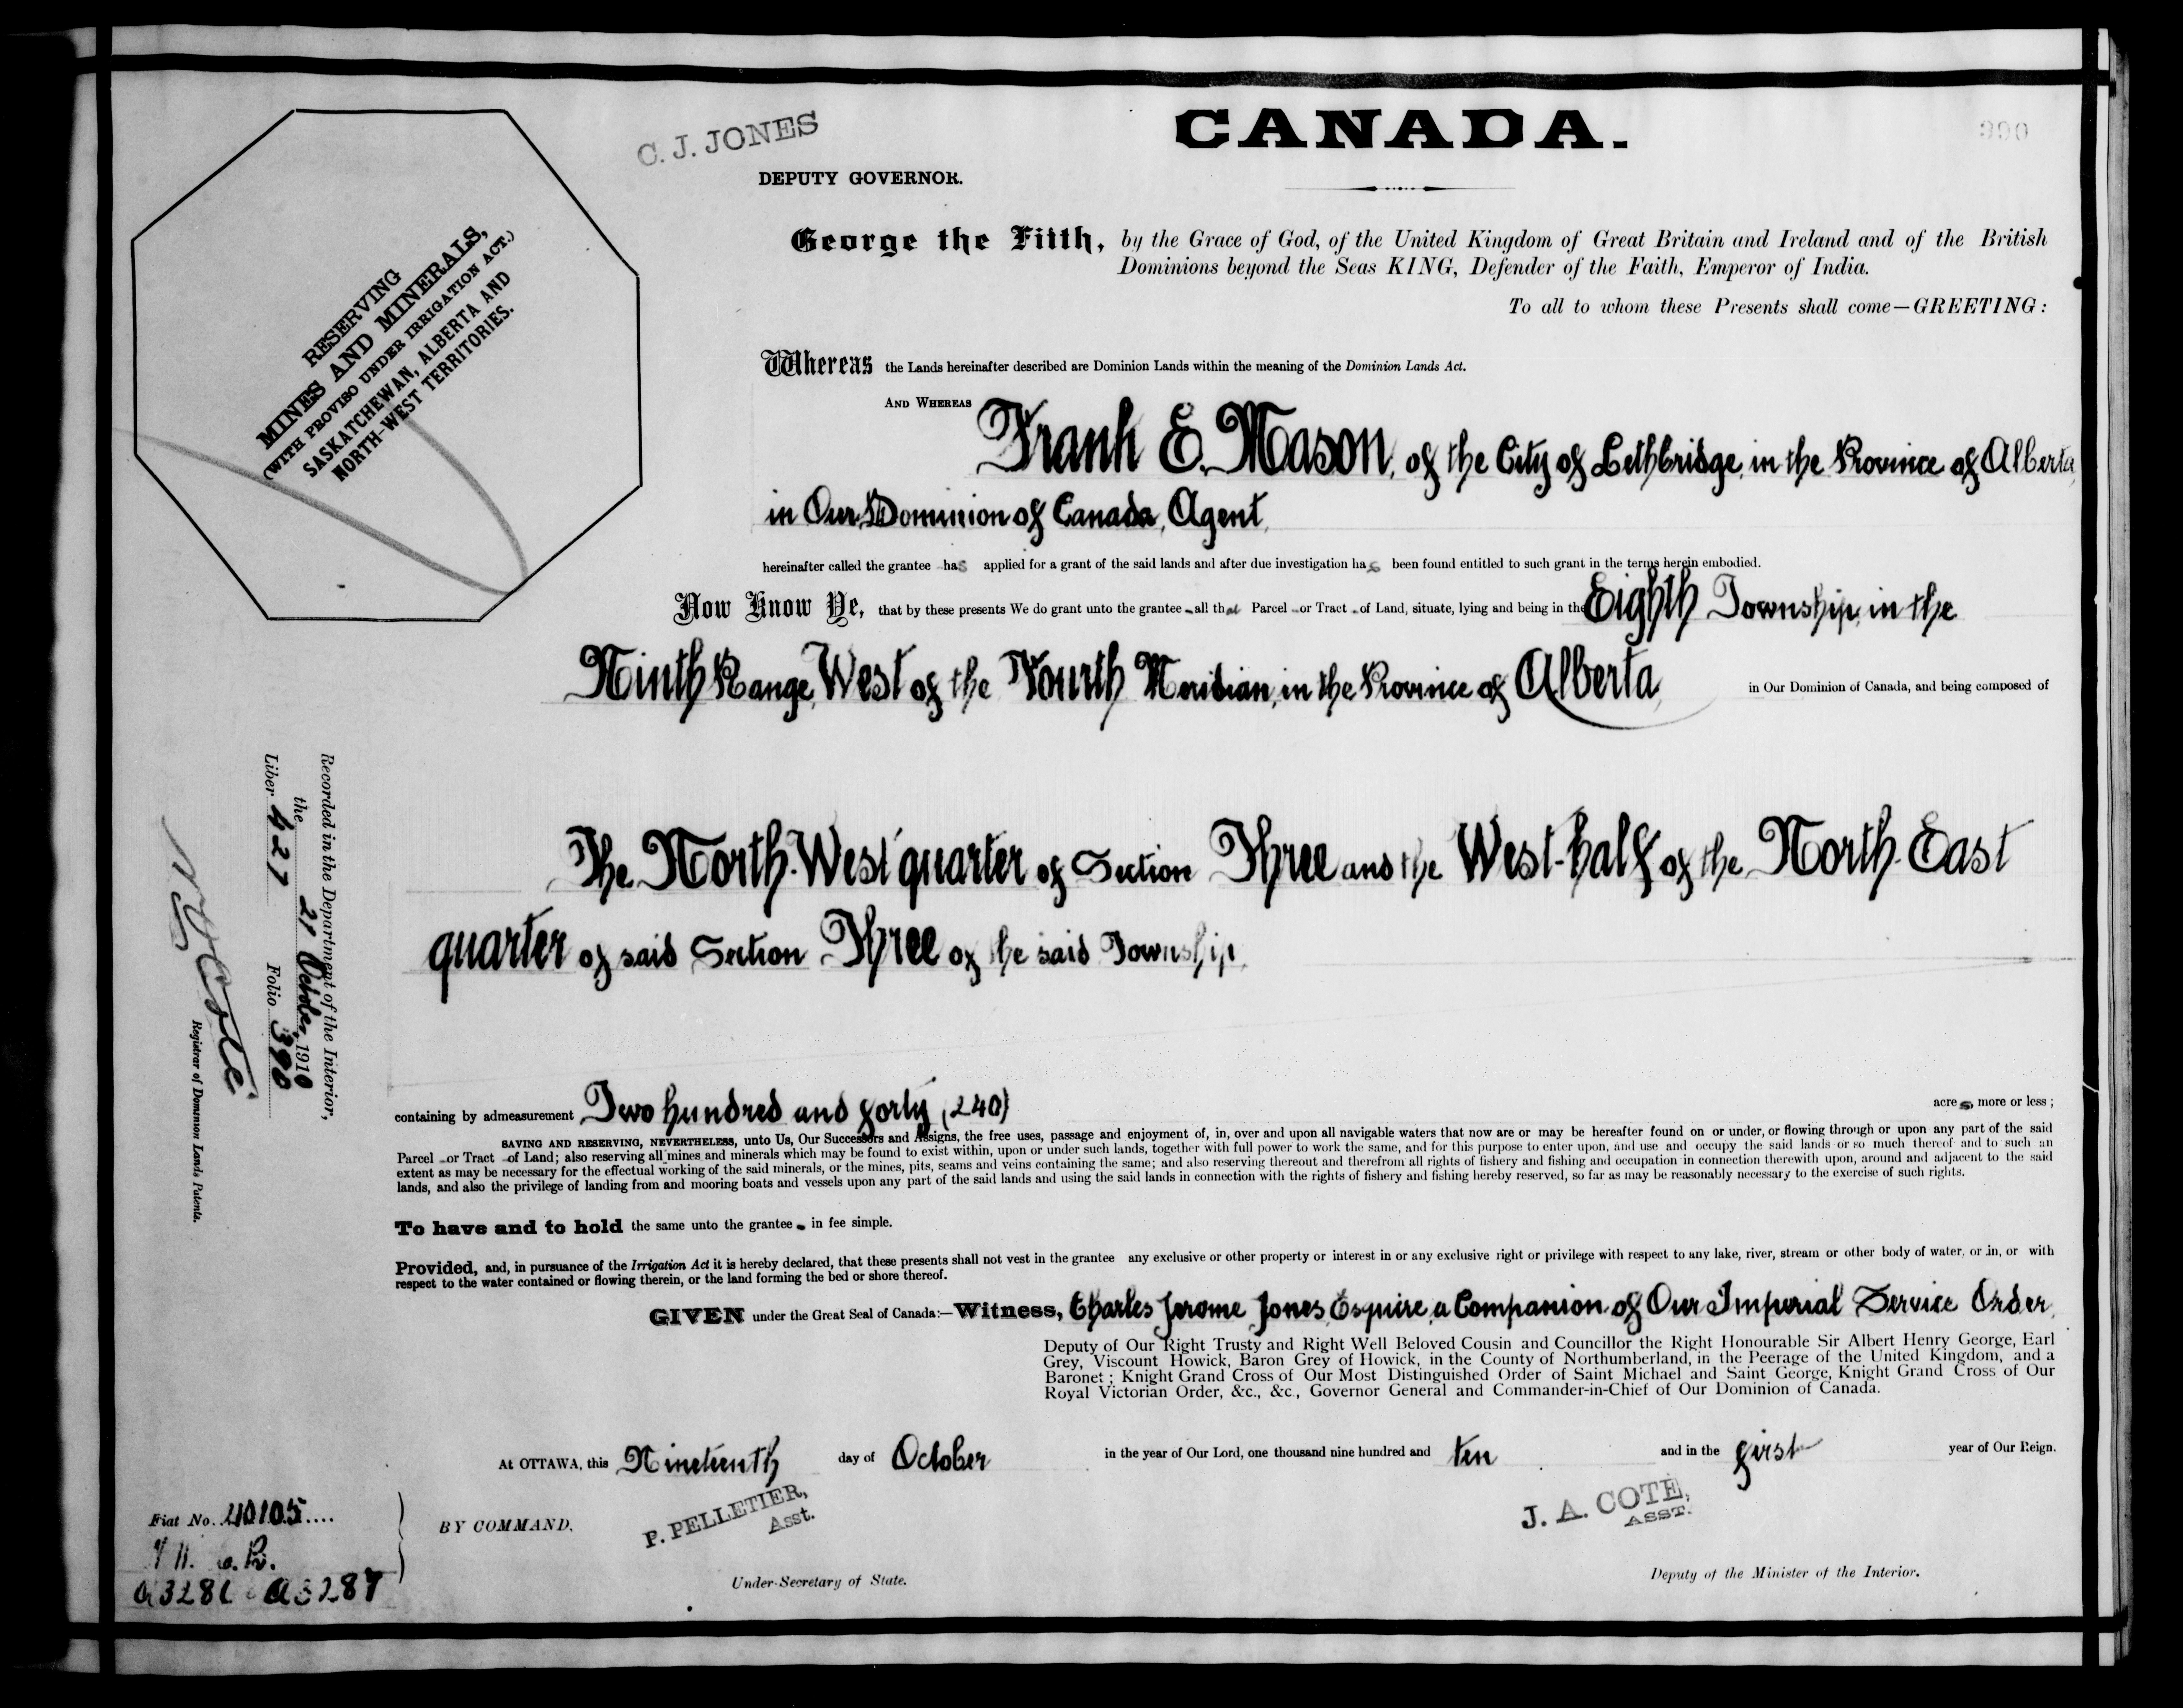 CANADA.
390
C. J. JONES
DEPUTY GOVERNOR.
RESERVING
MINES AND MINERALS,
(WITH PROVISO UNDER IRRIGATION ACT.)
SASKATCHEWAN, ALBERTA AND
NORTH-WEST TERRITORIES.
George the Fifth, by the Grace of God, of the United Kingdom of Great Britain and Ireland and of the British
Dominions beyond the Seas KING, Defender of the Faith, Emperor of India.
To all to whom these Presents shall come—GREETING:
Whereas the Lands hereinafter described are Dominion Lands within the meaning of the Dominion Lands Act.
AND WHEREAS Frank E. Mason, of the City of Lethbridge, in the Province of Alberta,
in Our Dominion of Canada, Agent,
hereinafter called the grantee has applied for a grant of the said lands and after due investigation has been found entitled to such grant in the terms herein embodied.
Now Know Ye, that by these presents We do grant unto the grantee all that Parcel or Tract of Land, situate, lying and being in the Eighth Township, in the
Ninth Range, West of the Fourth Meridian, in the Province of Alberta, in Our Dominion of Canada, and being composed of
The North-West quarter of Section Three and the West-half of the North-East
quarter of said Section Three of the said Township,
containing by admeasurement Two hundred and forty (240) acres, more or less;
SAVING AND RESERVING, NEVERTHELESS, unto Us, Our Successors and Assigns, the free uses, passage and enjoyment of, in, over and upon all navigable waters that now are or may be hereafter found on or under, or flowing through or upon any part of the said
Parcel or Tract of Land; also reserving all mines and minerals which may be found to exist within, upon or under such lands, together with full power to work the same, and for this purpose to enter upon, and use and occupy the said lands or so much thereof and to such an
extent as may be necessary for the effectual working of the said minerals, or the mines, pits, seams and veins containing the same; and also reserving thereout and therefrom all rights of fishery and fishing and occupation in connection therewith upon, around and adjacent to the said
lands, and also the privilege of landing from and mooring boats and vessels upon any part of the said lands and using the said lands in connection with the rights of fishery and fishing hereby reserved, so far as may be reasonably necessary to the exercise of such rights.
To have and to hold the same unto the grantee in fee simple.
Provided, and, in pursuance of the Irrigation Act it is hereby declared, that these presents shall not vest in the grantee any exclusive or other property or interest in or any exclusive right or privilege with respect to any lake, river, stream or other body of water, or in, or with
respect to the water contained or flowing therein, or the land forming the bed or shore thereof.
GIVEN under the Great Seal of Canada:—Witness, Charles Jerome Jones, Esquire, a Companion of Our Imperial Service Order,
Deputy of Our Right Trusty and Right Well Beloved Cousin and Councillor the Right Honourable Sir Albert Henry George, Earl
Grey, Viscount Howick, Baron Grey of Howick, in the County of Northumberland, in the Peerage of the United Kingdom, and a
Baronet; Knight Grand Cross of Our Most Distinguished Order of Saint Michael and Saint George, Knight Grand Cross of Our
Royal Victorian Order, &c., &c., Governor General and Commander-in-Chief of Our Dominion of Canada.
At OTTAWA, this Nineteenth day of October in the year of Our Lord, one thousand nine hundred and ten and in the first year of Our Reign.
BY COMMAND,
P. PELLETIER,
Asst.
Under-Secretary of State.
J. A. COTÉ,
ASST.
Deputy of the Minister of the Interior.
Recorded in the Department of the Interior,
the 21 October, 1910
Liber 427 Folio 390
N O Coté
Registrar of Dominion Lands Patents.
Fiat No. 40105....
a3287